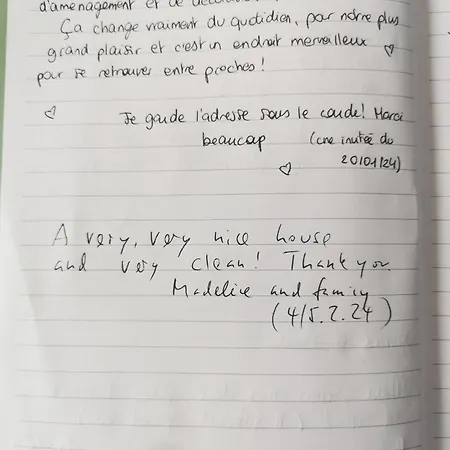 d'aménagement et de
Ça change vraiment du quotidien, pour notre plus
grand plaisir et c'est un endroit merveilleux
pour se retrouver entre proches !
Je garde l'adresse sous le coude! Merci
beaucoup (une invitée du
20/01/24)
A very, very nice house
and very clean! Thank you
Madelice and family
(4/5.2.24)